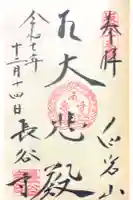 奉拝
白岩山
大悲殿
令和七年
十二月十四日
長谷寺